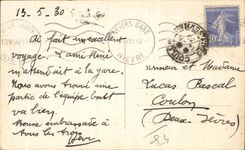 13-5-30
NEVERS GARE
NIÈVRE
Ai fait un excellent
voyage. L'ami René
m'attendait à la gare.
Nous avons trouvé une
partie de l'équipe tout
va bien.
Bonne embrassade à
tous les trois
Monsieur et Madame
Lucas Pascal
Coulon
(Deux-Sèvres)